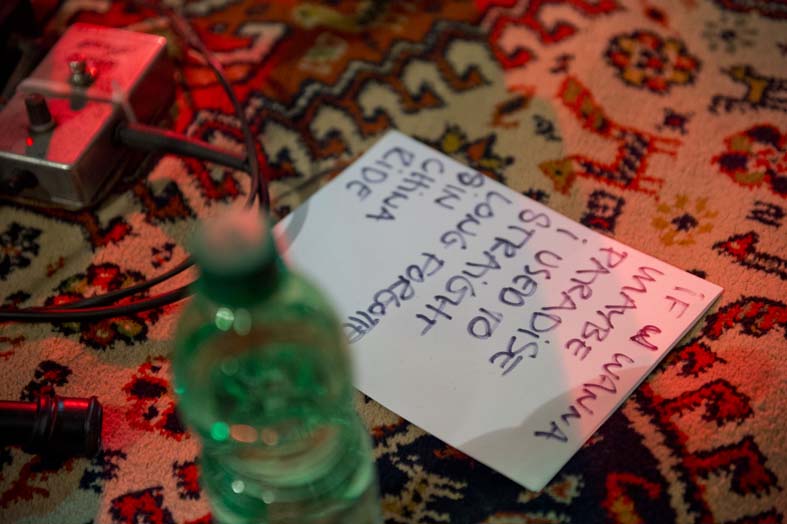 IF WANNA
MAYBE
PARADISE
i USED TO
STRAIGHT
LONG
SIN
CHINA
RIDE